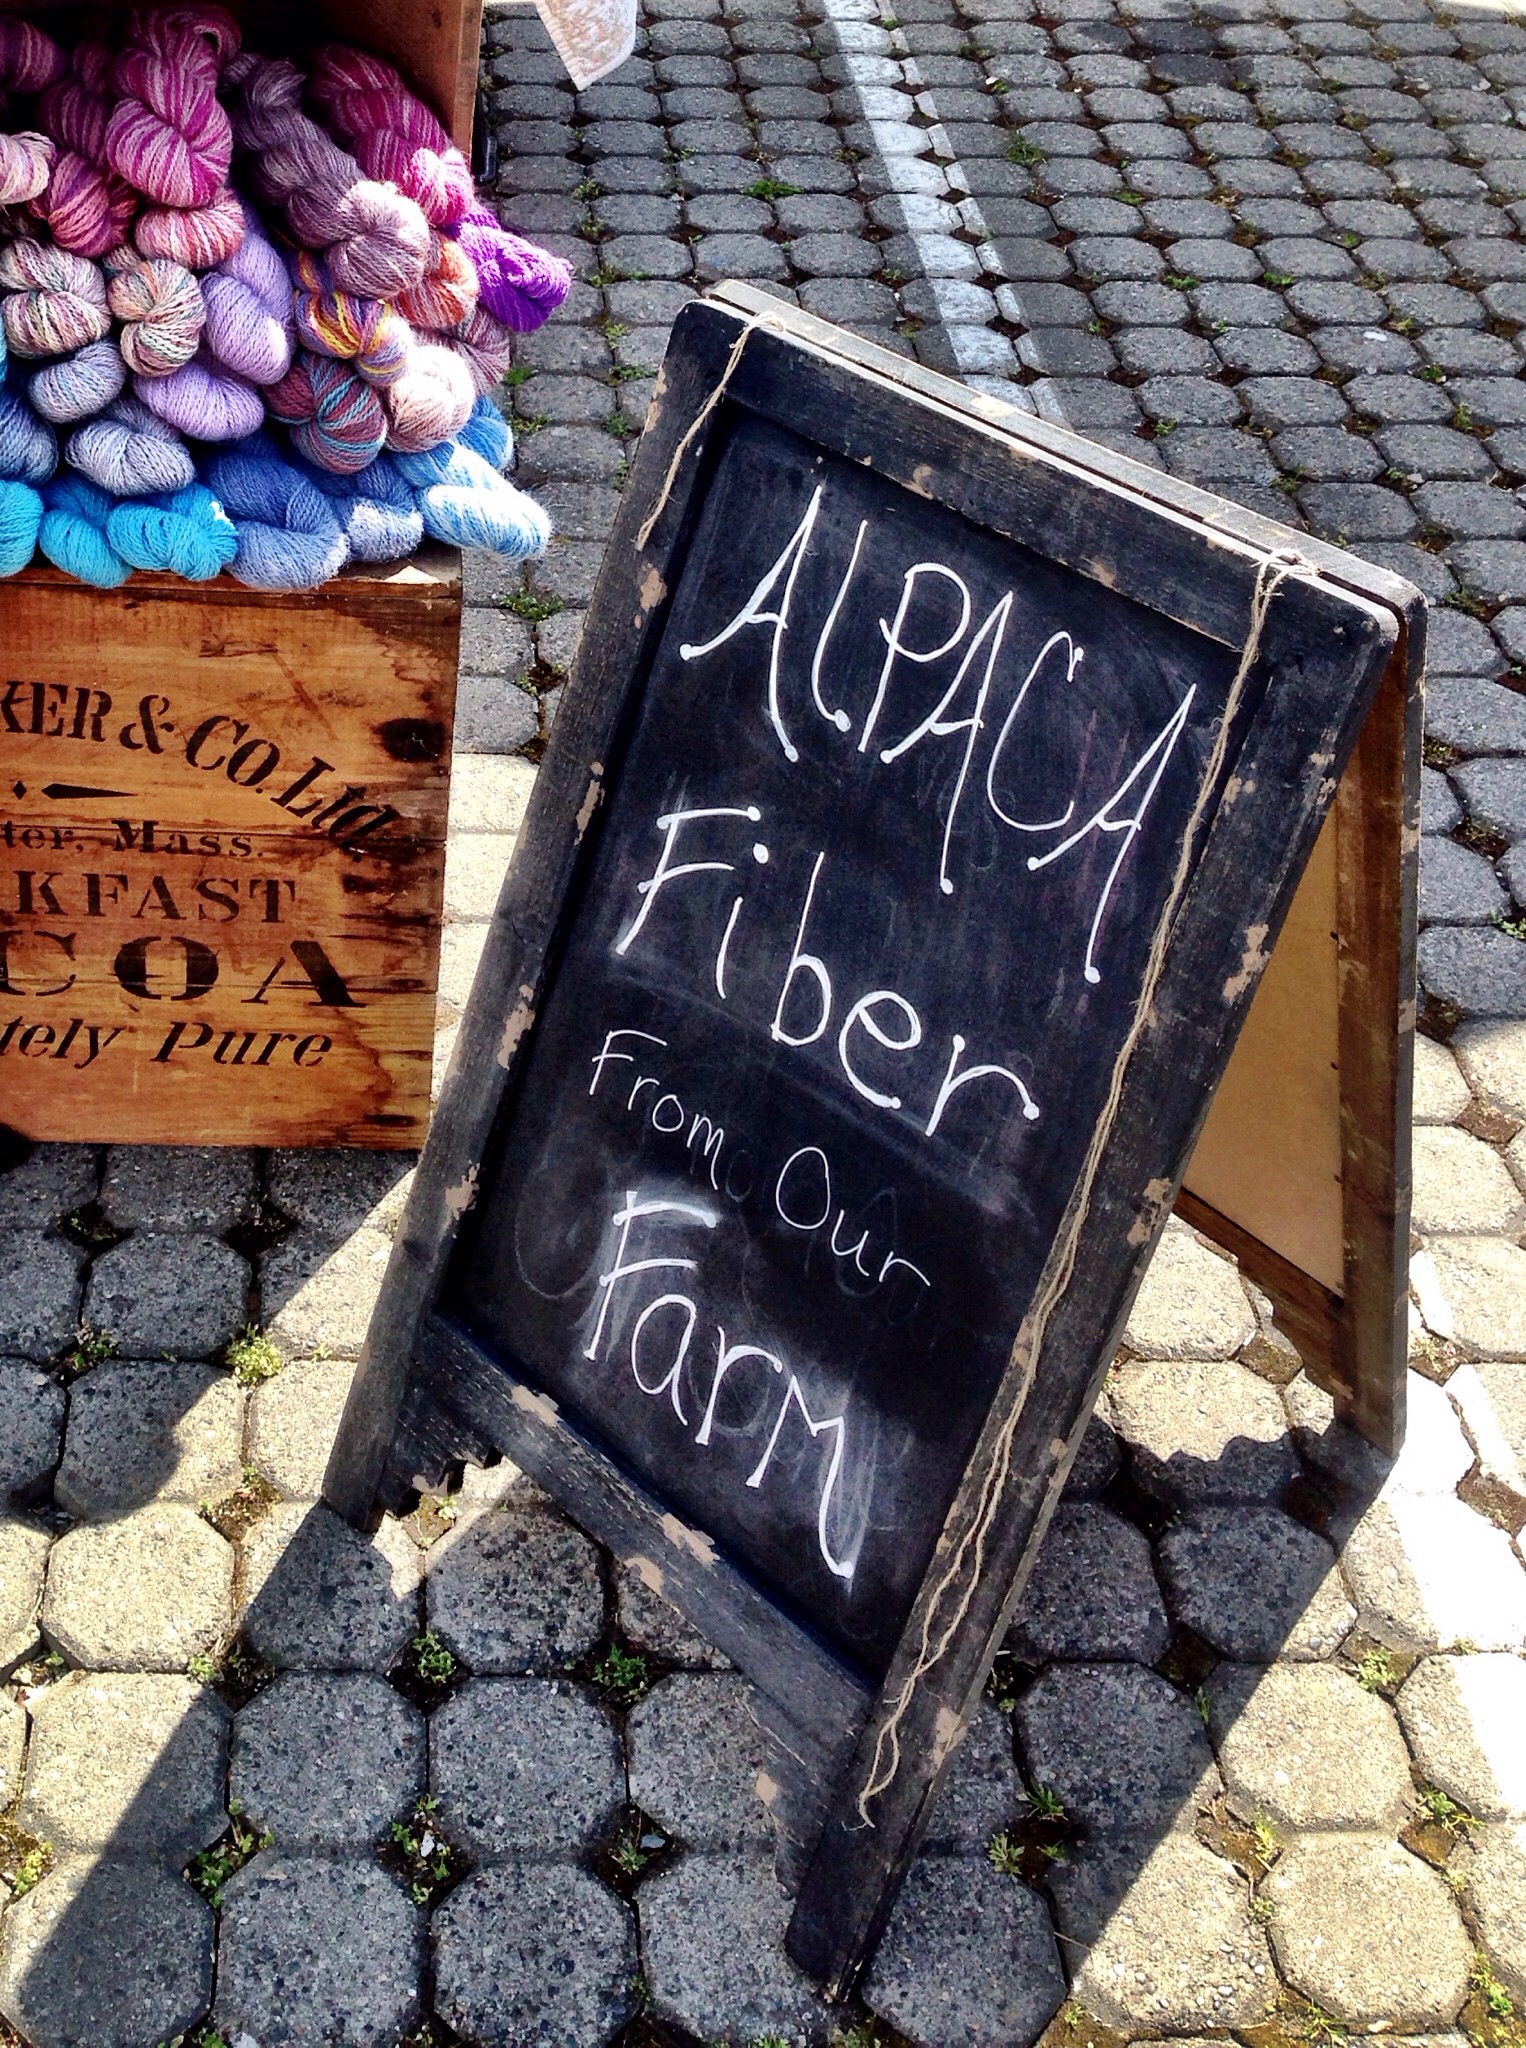 KER & CO. Ltd
ter, Mass.
KFAST
COA
tely Pure
ALPACA
Fiber
From Our
Farm